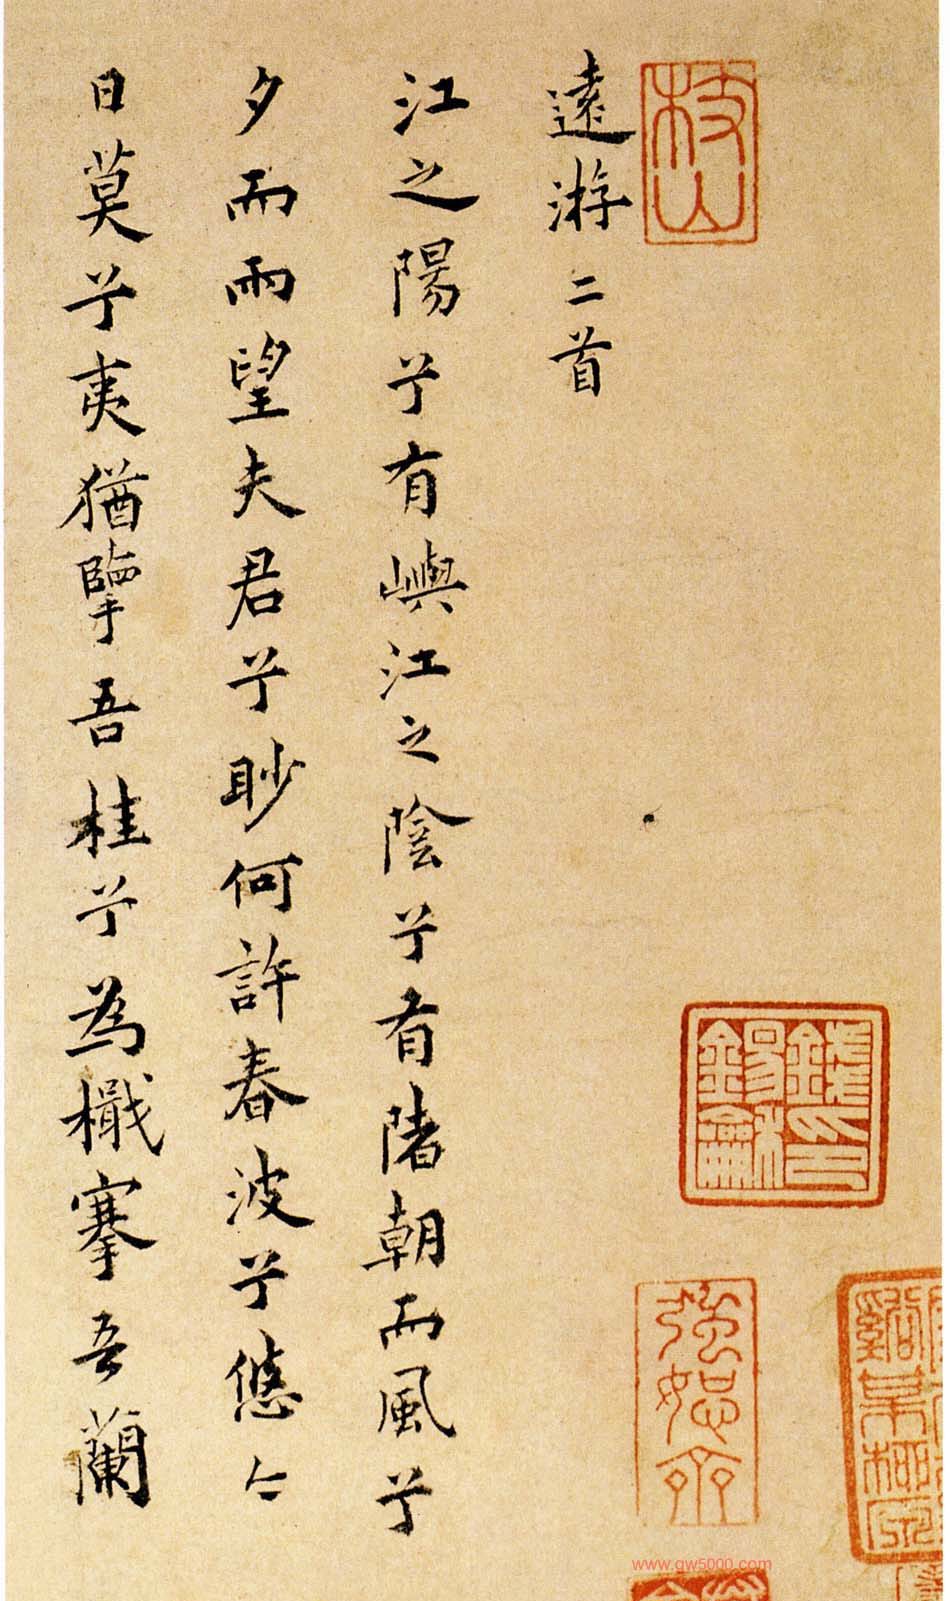 枝山
遠游 二首
江之陽兮有嶼江之陰兮有陼朝而風兮
夕而雨望夫君兮眇何許春波兮悠〻
日莫兮夷猶擥吾桂兮為檝搴吾蘭
錢氏錫祚
強恕齋
www.gw5000.com